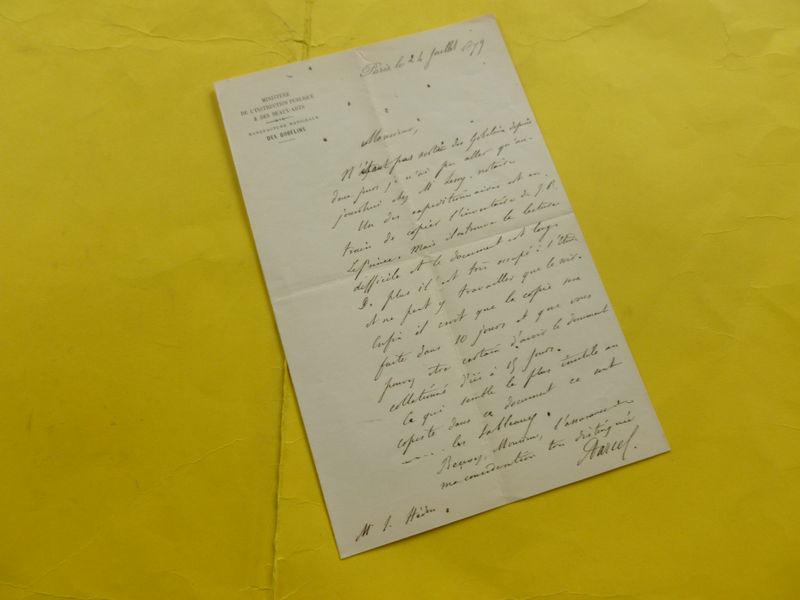 Paris le 24 Juillet 1879
MINISTÈRE
DE L'INSTRUCTION PUBLIQUE
& DES BEAUX-ARTS
MANUFACTURE NATIONALE
DES GOBELINS
Monsieur,
N'étant pas sorti des Gobelins depuis
deux jours je n'ai pu aller qu'au-
jourdhui chez Mr notaire.
Un des expeditionnaires est en
train de copier l'inventaire de J. B.
LePrince. Mais il trouve la lecture
difficile et le document est long.
De plus il est très occupé à l'Etude
et ne peut y travailler que le soir.
Enfin il croit que la copie sera
faite dans 10 jours et que vous
pouvez être certain d'avoir le document
collationné d'ici à 15 jours.
Ce qui semble le plus inutile au
copiste dans ce document ce sont
les tableaux.
Recevez, Monsieur, l'assurance de
ma considération très distinguée
Darcel
Mr J. Hédou